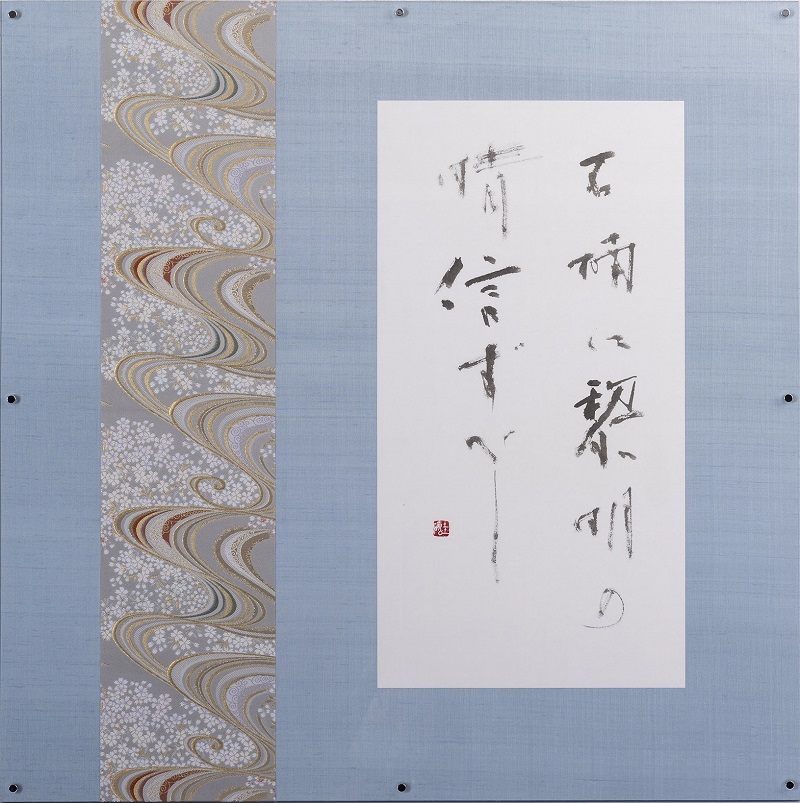 石楠に黎明の
晴信ずべし